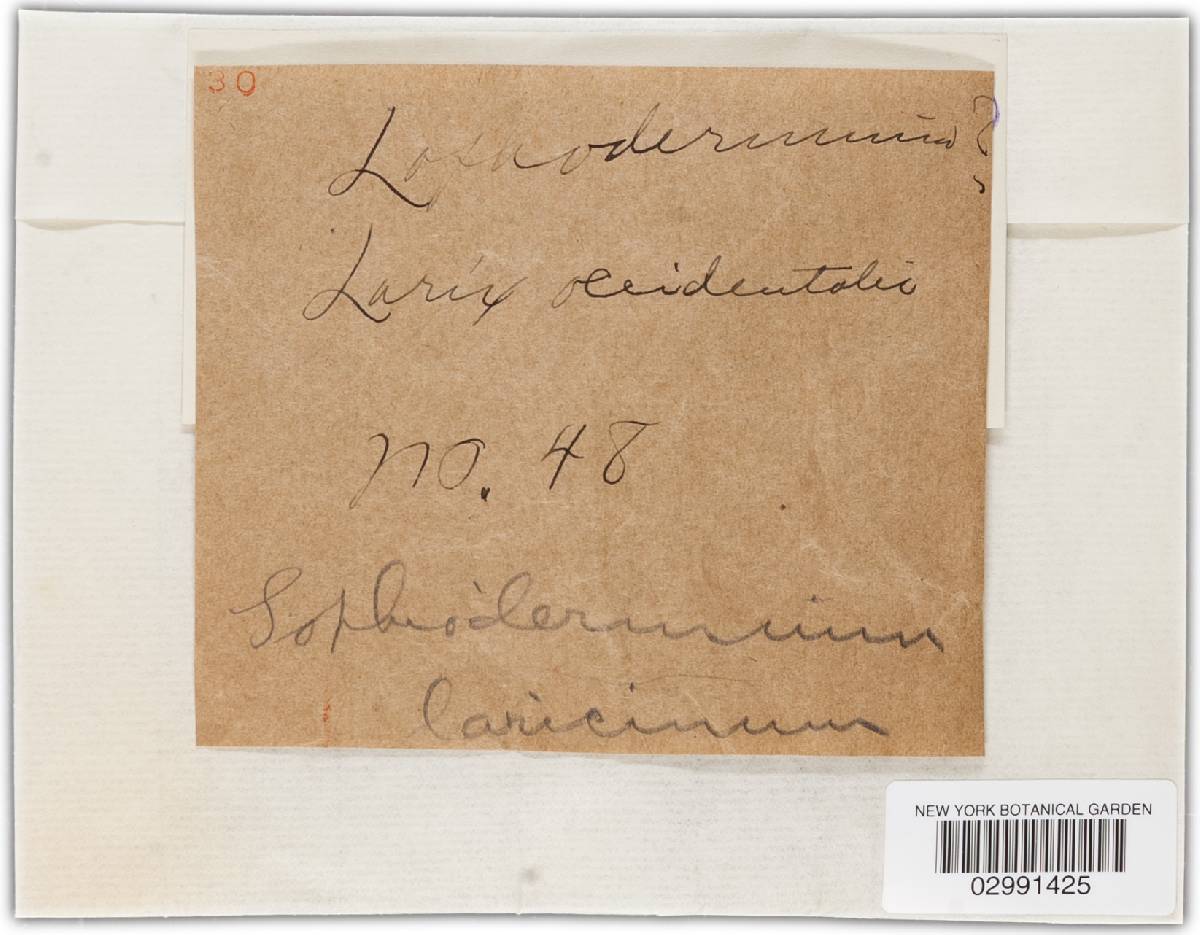 30
Lophodermium?
Larix occidentalis
No. 48
Lophodermium
laricinum
NEW YORK BOTANICAL GARDEN
02991425